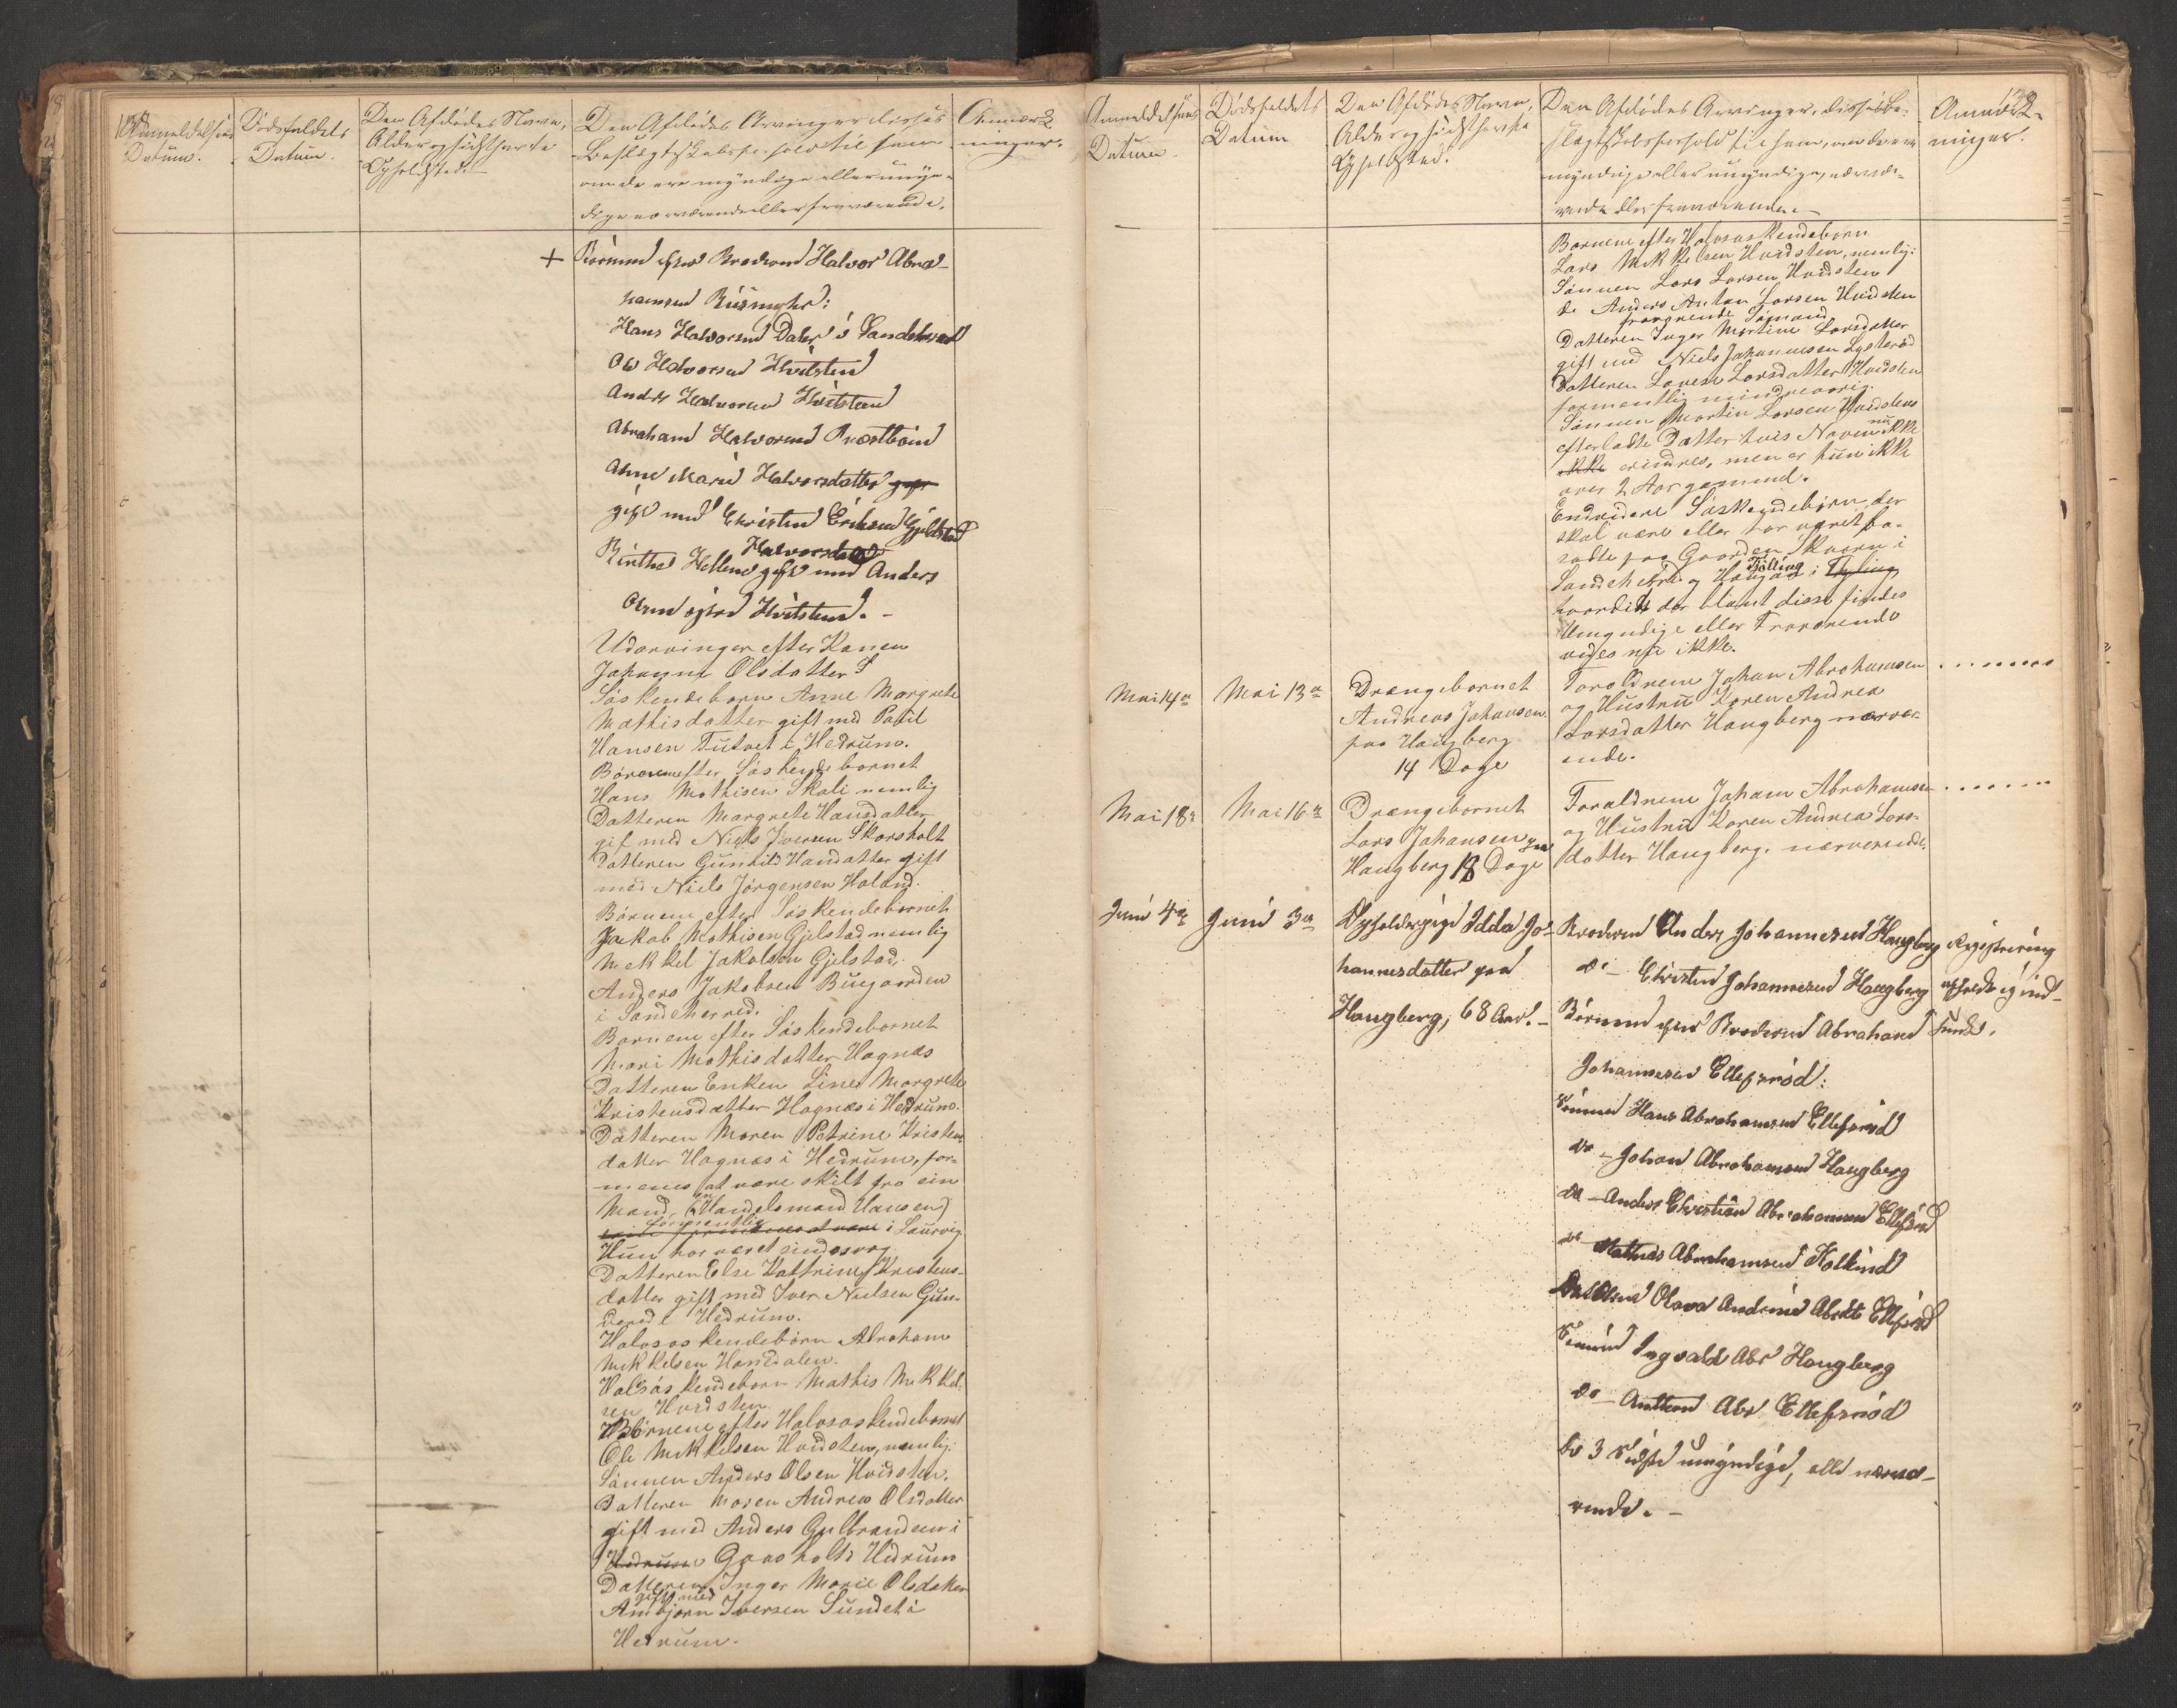 Anmeldelsens
Datum.
Dødsfaldets
Datum.
Den Afdødes Navn,
Alder og sidst havte
Opholdsted.
Den Afdødes Arvinger disses
Beslægtskabsforhold til ham
om de ere myndige eller umyn-
dige nærværende eller fraværende.
Anmærk
ninger.
+ Børnene efter Broderen Halvor Abra-
hamsen
Hans Halvorsen Dahl i Sandeherred
Ole Halvorsen Hvitsten
Anders Halvorsen Hvitsten
Abraham Halvorsen Præstbøen
Anne Marie Halvorsdatter
gift med Christen Eriksen Gjelstad
Halvorsdatter
Hellene gift med Anders
Olsen Hvitsten. -
Udarvinger efter Konen
Johanne Olsdatter
Søskendebarn Anne Margrete
Mathisdatter gift med Paul
Hansen Tutvet i Hedrum.
Børnene efter Søskendebarnet
Hans Mathisen Skali nemlig
Datteren Margrete Hansdatter
gif med Niels Iversen Skorsholt
Datteren Gunhild Hansdatter gift
med Niels Jørgensen Holand.
Børnene efter Søskendebarnet
Jakob Mathisen Gjelstad nemlig
Mekkel Jakobsen Gjelstad,
Anders Jakobsen Buegarden
i Sandeherred.
Barnene efter Søskendebarnet
Mari Mathisdatter Hagnæs
Datteren Enken Line Margrete
Kristensdatter Hagnæs i Hedrum.
Datteren Maren Petrine Kristens
datter Hagnæs i Hedrum, for-
menes at være skilt fra sin
Mand, (en Handelsmand Hansen)
formentlig i Laurvig
Hun har været
Datteren Else Kattrine Kristens-
datter gift med Iver Nielsen Gun-
i Hedrum.
Halvsøskendebarn Abraham
Mekkelsen Hansdalen.
Halvsøskendebarn Mathis Mekkel
sen Hvidsten
Børnene efter Halvsøskendebarnet
Ole Mekkelsen Hvidsten, nemlig:
Sønnen Anders Olsen Hvidsten.
Datteren Maren Andrea Olsdatter
gift med Anders Gulbrandsen i
Hedrum Gaasholt i Hedrum
Datteren Inger Marie Olsdatter
gift med
Anbjørn Iversen Sundet i
Hedrum.
Anmeldelsens
Datum.
Dødsfaldets
Datum
Den Afdødes Navn,
Alder og sidst havte
Opholdsted.
Den Afdødes Arvinger, disses Be-
slægtskabsforhold til ham, om de ere
myndige eller umyndige, nærvæ-
rende eller fraværende.
Anmærk-
ninger.
Barnene efter Halvsøskendebarn
Lars Mekkelsen Hvidsten, nemlig:
Sønnen Lars Larsen Hvidsten
do Anders Anton Larsen Hvidsten
fraværende Sømand
Datteren Inger Martine Larsdatter
gift med Niels Johannesen Lysterød
Datteren Lovese Larsdatter Hvidsten
formentlig mindreaarig.
Sønnen Martin Larsen Hvidstens
efterladte Datter hvis Navn nu ikke
ikke erindres, men er hun ikke
over 2 Aar gammel.
Endvidere Søskendebørn der
skal være eller har været bo-
satte paa Gaarden Skaara i
Sandeherred og Haugan i Tjølling
hvorvidt der blant disse findes
Umyndige eller Fraværende
vides nu ikke.
Mai 14de
Mai 13de
Drengebarnet
Andreas Johansen
paa Haugberg
14 Dage
Foraldrene Johan Abrahamsen
og Hustru Karen Andrea
Larsdatter Haugberg nærvær-
ende.
Mai 18de
Mai 16de
Drængebarnet
Lars Johansen paa
Haugberg 18 Dage
Foraldrene Johan Abrahamsen
og Hustru Karen Andrea Lars-
datter Haugberg. nærværende.
Juni 4de
Juni 3de
Opholdspige Idda Jo-
hannesdatter paa
Haugberg, 68 Aar. -
Broderen Anders Johannesen Haugberg
do - Christen Johannesen Haugberg
Børnene efter Broderen Abraham
Johannesen Ellefsrød:
Sønnen Hans Abrahamsen Ellefsrød
do - Johan Abrahamsen Haugberg
do - Anders Christian Abrahamsen Ellefsrød
do - Mathias Abrahamsen
Datteren Olava Andrine Abrdtr Ellefsrød
Sønnen Ingvald Abr Haugberg
do - Anthon Abr Ellefsrød
de 3 Sidste umyndige, alle nærvæ-
rende. -
Registrering